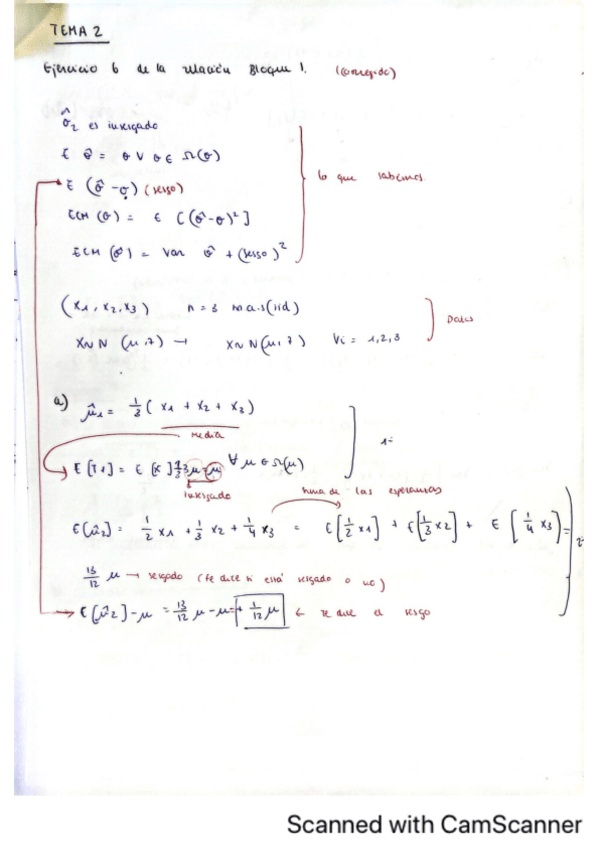 TEMA 2
Ejercicio 6 de la relación Bloque 1. (corregido)
σ̂2 es insesgado
E θ̂ = θ ∀ θ ∈ Ω(θ)
E (θ̂ - θ) (sesgo)
ECM (θ) = E [(θ̂-θ)²]
lo que sabemos
ECM (θ̂) = Var θ̂ + (sesgo)²
(x1, x2, x3) n = 3 m.a.s (iid)
Datos
X~N (μ,7) → X~N(μ,7) ∀i = 1,2,3
a) μ̂1 = 1/3 ( x1 + x2 + x3)
media
E[T1] = E [x̄] 1/3 3μ = μ ∀ μ ∈ Ω(μ)
insesgado
suma de las esperanzas
E(μ̂2) = 1/2 x1 + 1/3 x2 + 1/4 x3 = E[1/2 x1] + E[1/3 x2] + E [1/4 x3] =
13/12 μ → sesgado (te dice si está sesgado o no)
E[μ̂2] - μ = 13/12 μ - μ = + 1/12 μ ← te dice el sesgo
Scanned with CamScanner